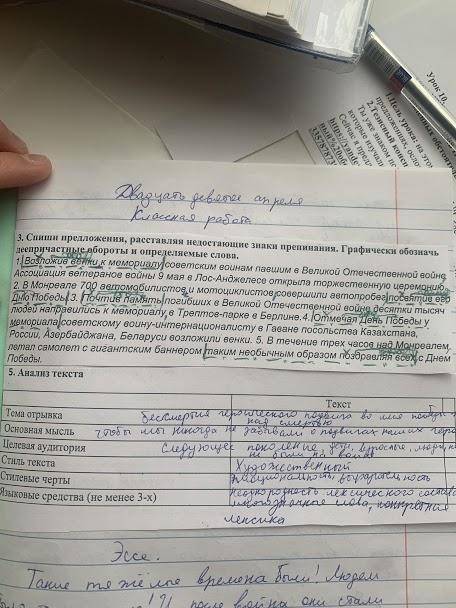 Урок 10.
1.Цель урока: на это
предложениях, осло
2.Тезисный конс
Ты уже знаком
которые изуча
Сейчас я пред
https://yande
Двадцать девятое апреля
Классная работа
3. Спиши предложения, расставляя недостающие знаки препинания. Графически обозначь
деепричастные обороты и определяемые слова.
1. Возложив венки к мемориалу советским воинам павшим в Великой Отечественной войне
Ассоциация ветеранов войны 9 мая в Лос-Анжелесе открыла торжественную церемонию.
2. В Монреале 700 автомобилистов и мотоциклистов совершили автопробег посвятив его
Дню Победы. 3. Почтив память погибших в Великой Отечественной войне десятки тысяч
людей направились к мемориалу в Трептов-парке в Берлине. 4. Отмечая День Победы у
мемориала советскому воину-интернационалисту в Гаване посольства Казахстана,
России, Азербайджана, Беларуси возложили венки. 5. В течение трех часов над Монреалем
летал самолет с гигантским баннером таким необычным образом поздравляя всех с Днем
Победы.
5. Анализ текста
Текст
Тема отрывка бессмертия героического подвига во имя победы
над смертью
Основная мысль чтобы мы никогда не забывали о подвигах наших геро
Целевая аудитория Следующее поколение, дети, взрослые, люди,
не были на войне
Стиль текста Художественный
Стилевые черты эмоциональность, выразительность
Языковые средства (не менее 3-х) неоднородность лексического состава
многозначные слова, конкретная
лексика
Эссе.
Такие тяжёлые времена были! Людям
И после войны они стали